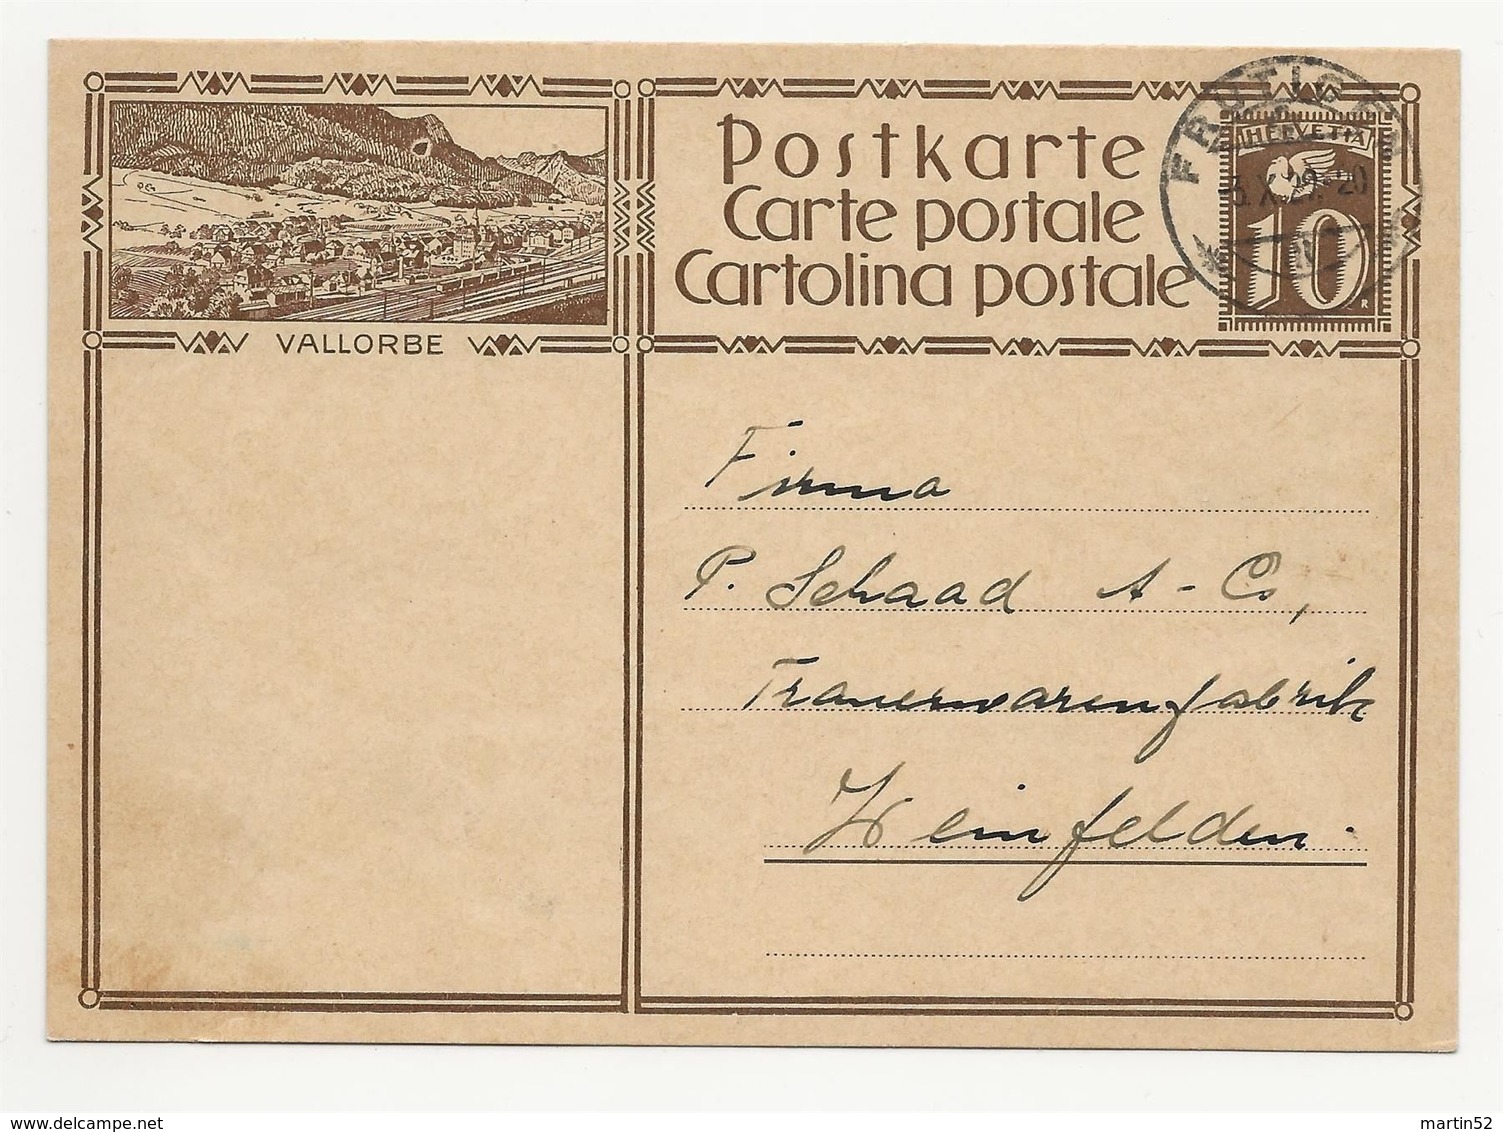 VALLORBE
Postkarte
Carte postale
Cartolina postale
HELVETIA
10
FRUTIGEN
3.X.29.-20
Firma
P. Schaad A-Co,
Trauerwarenfabrik
Weinfelden.
delcampe.net
martin52